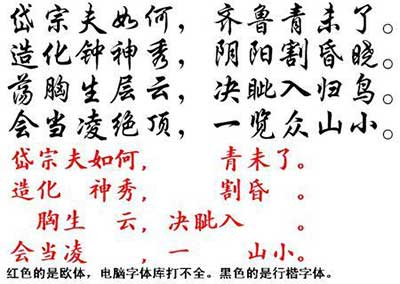 岱宗夫如何，齐鲁青未了。
造化钟神秀，阴阳割昏晓。
荡胸生层云，决眦入归鸟。
会当凌绝顶，一览众山小。
岱宗夫如何，　　青未了。
造化　神秀，　　割昏　。
　胸生　云，决眦入　　。
会当凌　　，一　　山小。
红色的是欧体，电脑字体库打不全。黑色的是行楷字体。